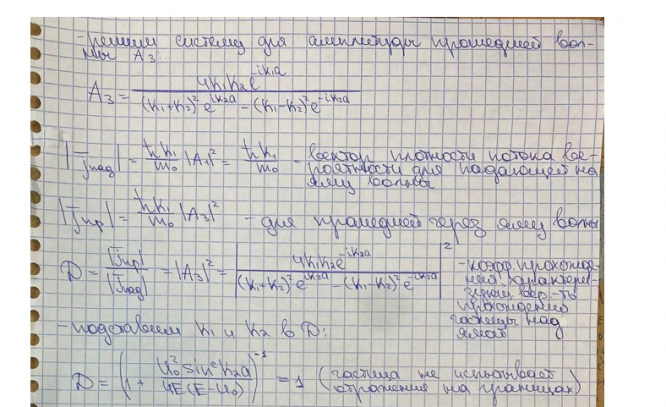 - решим систему для амплитуды прошедшей вол-
ны A₃:
A₃ = 4k₁k₂e^{-ik₁a} / ((k₁+k₂)² e^{-ik₂a} - (k₁-k₂)² e^{-ik₂a})
|j̅пад| = ħk₁/m₀ |A₁|² = ħk₁/m₀ - вектор плотности потока ве-
роятности для падающей на
яму волны
|j̅пр| = ħk₁/m₀ |A₃|² - для прошедшей через яму волны
D = |j̅пр| / |j̅пад| = |A₃|² = |4k₁k₂e^{-ik₂a} / ((k₁+k₂)² e^{-ik₂a} - (k₁-k₂)² e^{-ik₂a})|² - коэфф. прохожде-
ния, характери-
зующий вер-ть
прохождения
частицы над
ямой
- подставим k₁ и k₂ в D:
D = (1 + U₀² sin² k₂a / 4E(E-U₀))⁻¹ = 1 (частица не испытывает
отражения на границах)